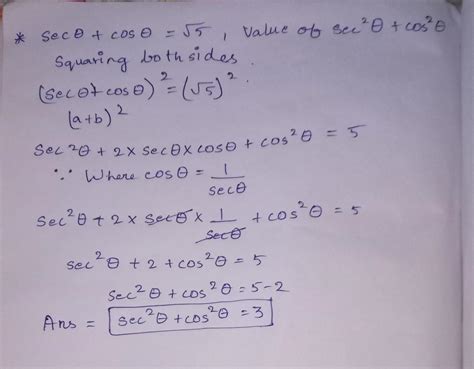 * secθ + cosθ = √5 , Value of sec²θ + cos²θ
Squaring both sides.
(secθ + cosθ)² = (√5)².
(a+b)²
sec²θ + 2 × secθ × cosθ + cos²θ = 5
∵ Where cosθ = 1/secθ
sec²θ + 2 × secθ × 1/secθ + cos²θ = 5
sec²θ + 2 + cos²θ = 5
sec²θ + cos²θ = 5-2
Ans = sec²θ + cos²θ = 3